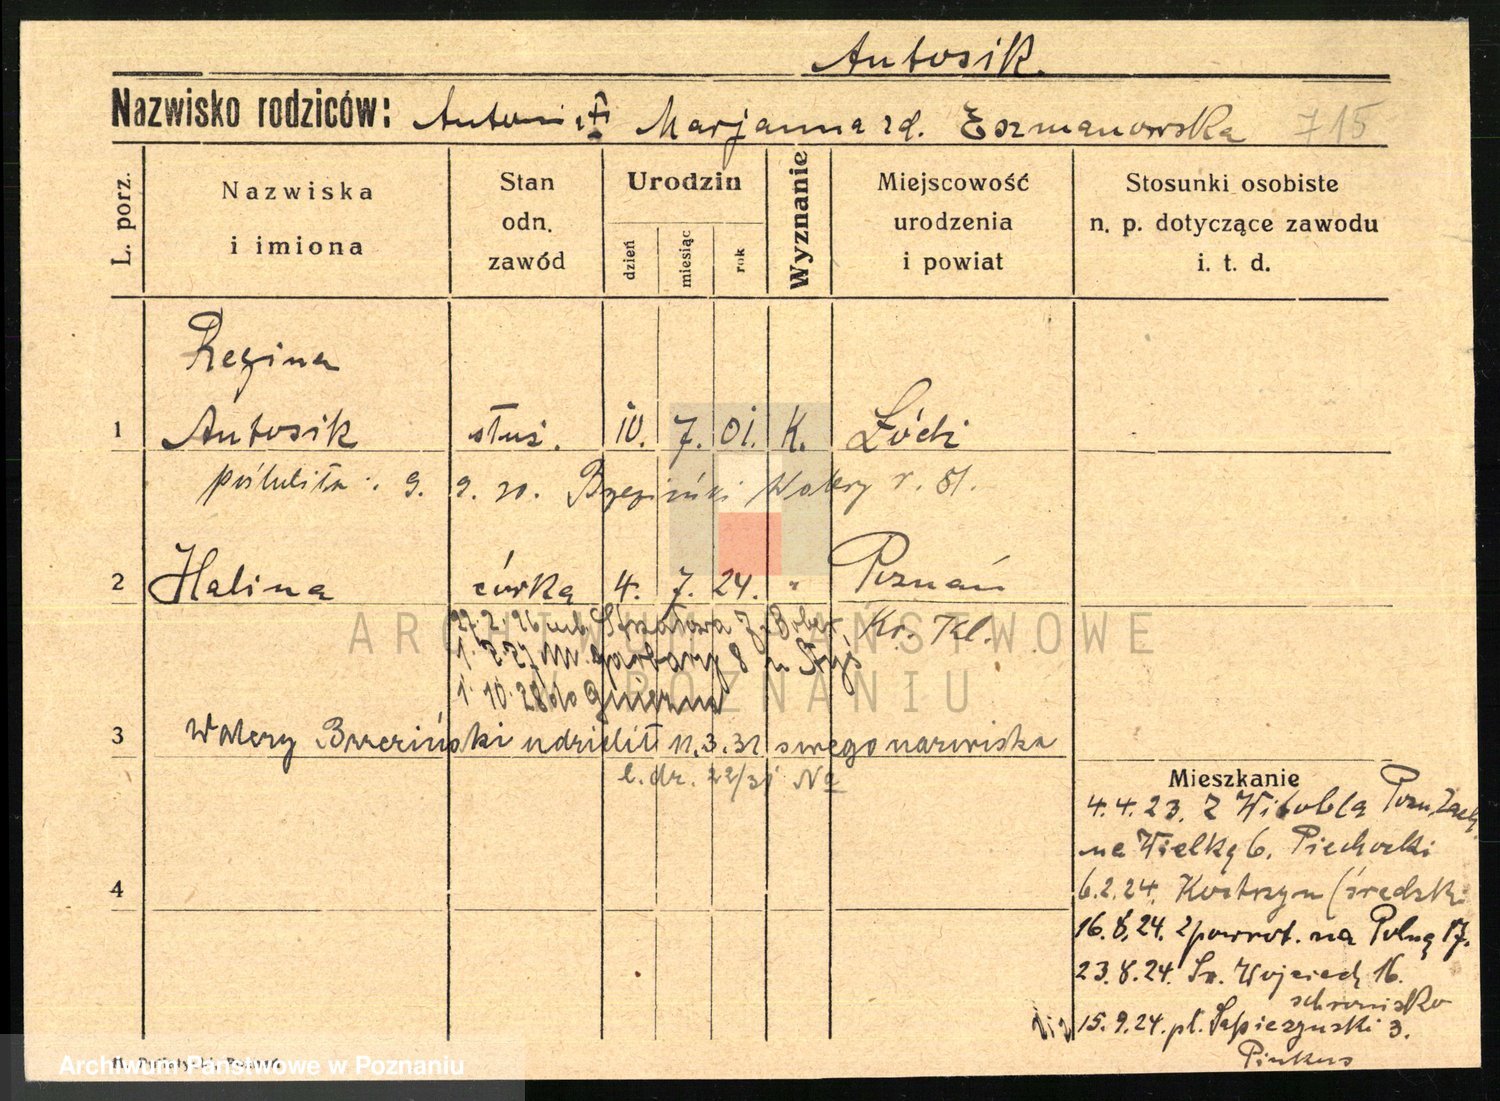 Antosik.
Nazwisko rodziców: Antoni i Marjanna zd. Eszmanowska 715
L. porz.
Nazwiska
i imiona
Stan
odn.
zawód
Urodzin
dzień
miesiąc
rok
Wyznanie
Miejscowość
urodzenia
i powiat
Stosunki osobiste
n. p. dotyczące zawodu
i. t. d.
Regina
1 Antosik służ. 10. 7. 01. K. Łódź
poślubiła 9. 9. 30. Brzeziński Walery r. 81.
2 Halina córka 4. 7. 24. " Poznań
27.2.26 Strzałowa 7 Bober Kr. Tel.
1. 2.27 Garbary 8
1. 10. 28 do Gniezna
3 Walery Brzeziński udzielił 11.3.32 swego nazwiska
l. dz. 22/31 No
Mieszkanie
4.4.23. z Witobla Pozn. Zach.
na Wielką 6. Piechocki
4
6.2.24. Kostrzyn (średzki
16.8.24. zpowrot. na Polną 17.
23.8.24. Św. Wojciech 16.
schronisko
15.9.24. pl. Sapieżyński 3.
Pinkus
ARCHIWUM PAŃSTWOWE
W POZNANIU
Archiwum Państwowe w Poznaniu